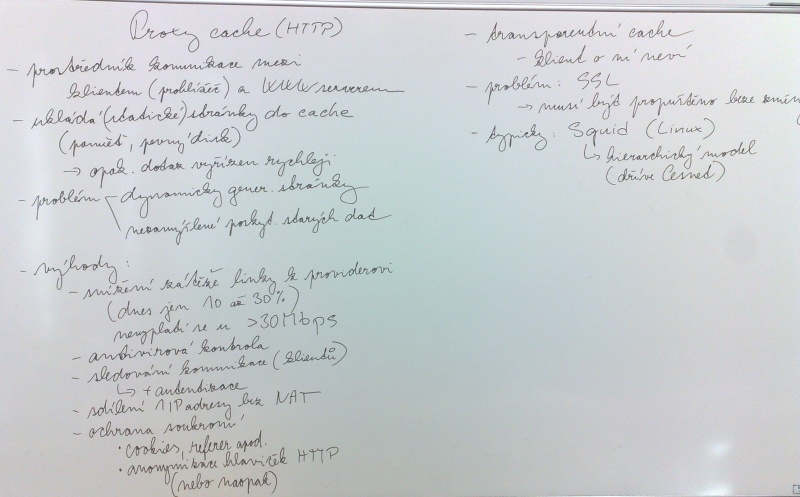 Proxy cache (HTTP)
- prostředník komunikace mezi
klientem (prohlížeč) a WWW serverem
- ukládá (statické) stránky do cache
(paměť, pevný disk)
→ opak. dotaz vyřízen rychleji
- problém - dynamicky gener. stránky
nezamýšlené poskyt. starých dat
- výhody:
- snížení zátěže linky k providerovi
(dnes jen 10 až 30%)
nevyplatí se u >30Mbps
- antivirová kontrola
- sledování komunikace (klientů)
↳ + autentizace
- sdílení 1 IP adresy bez NAT
- ochrana soukromí
• cookies, referer apod.
• anonymizace hlaviček HTTP
(nebo naopak)
- transparentní cache
- klient o ní neví
- problém: SSL
→ musí být propuštěno beze změn
- typicky: Squid (Linux)
↳ hierarchický model
(dříve Cesnet)